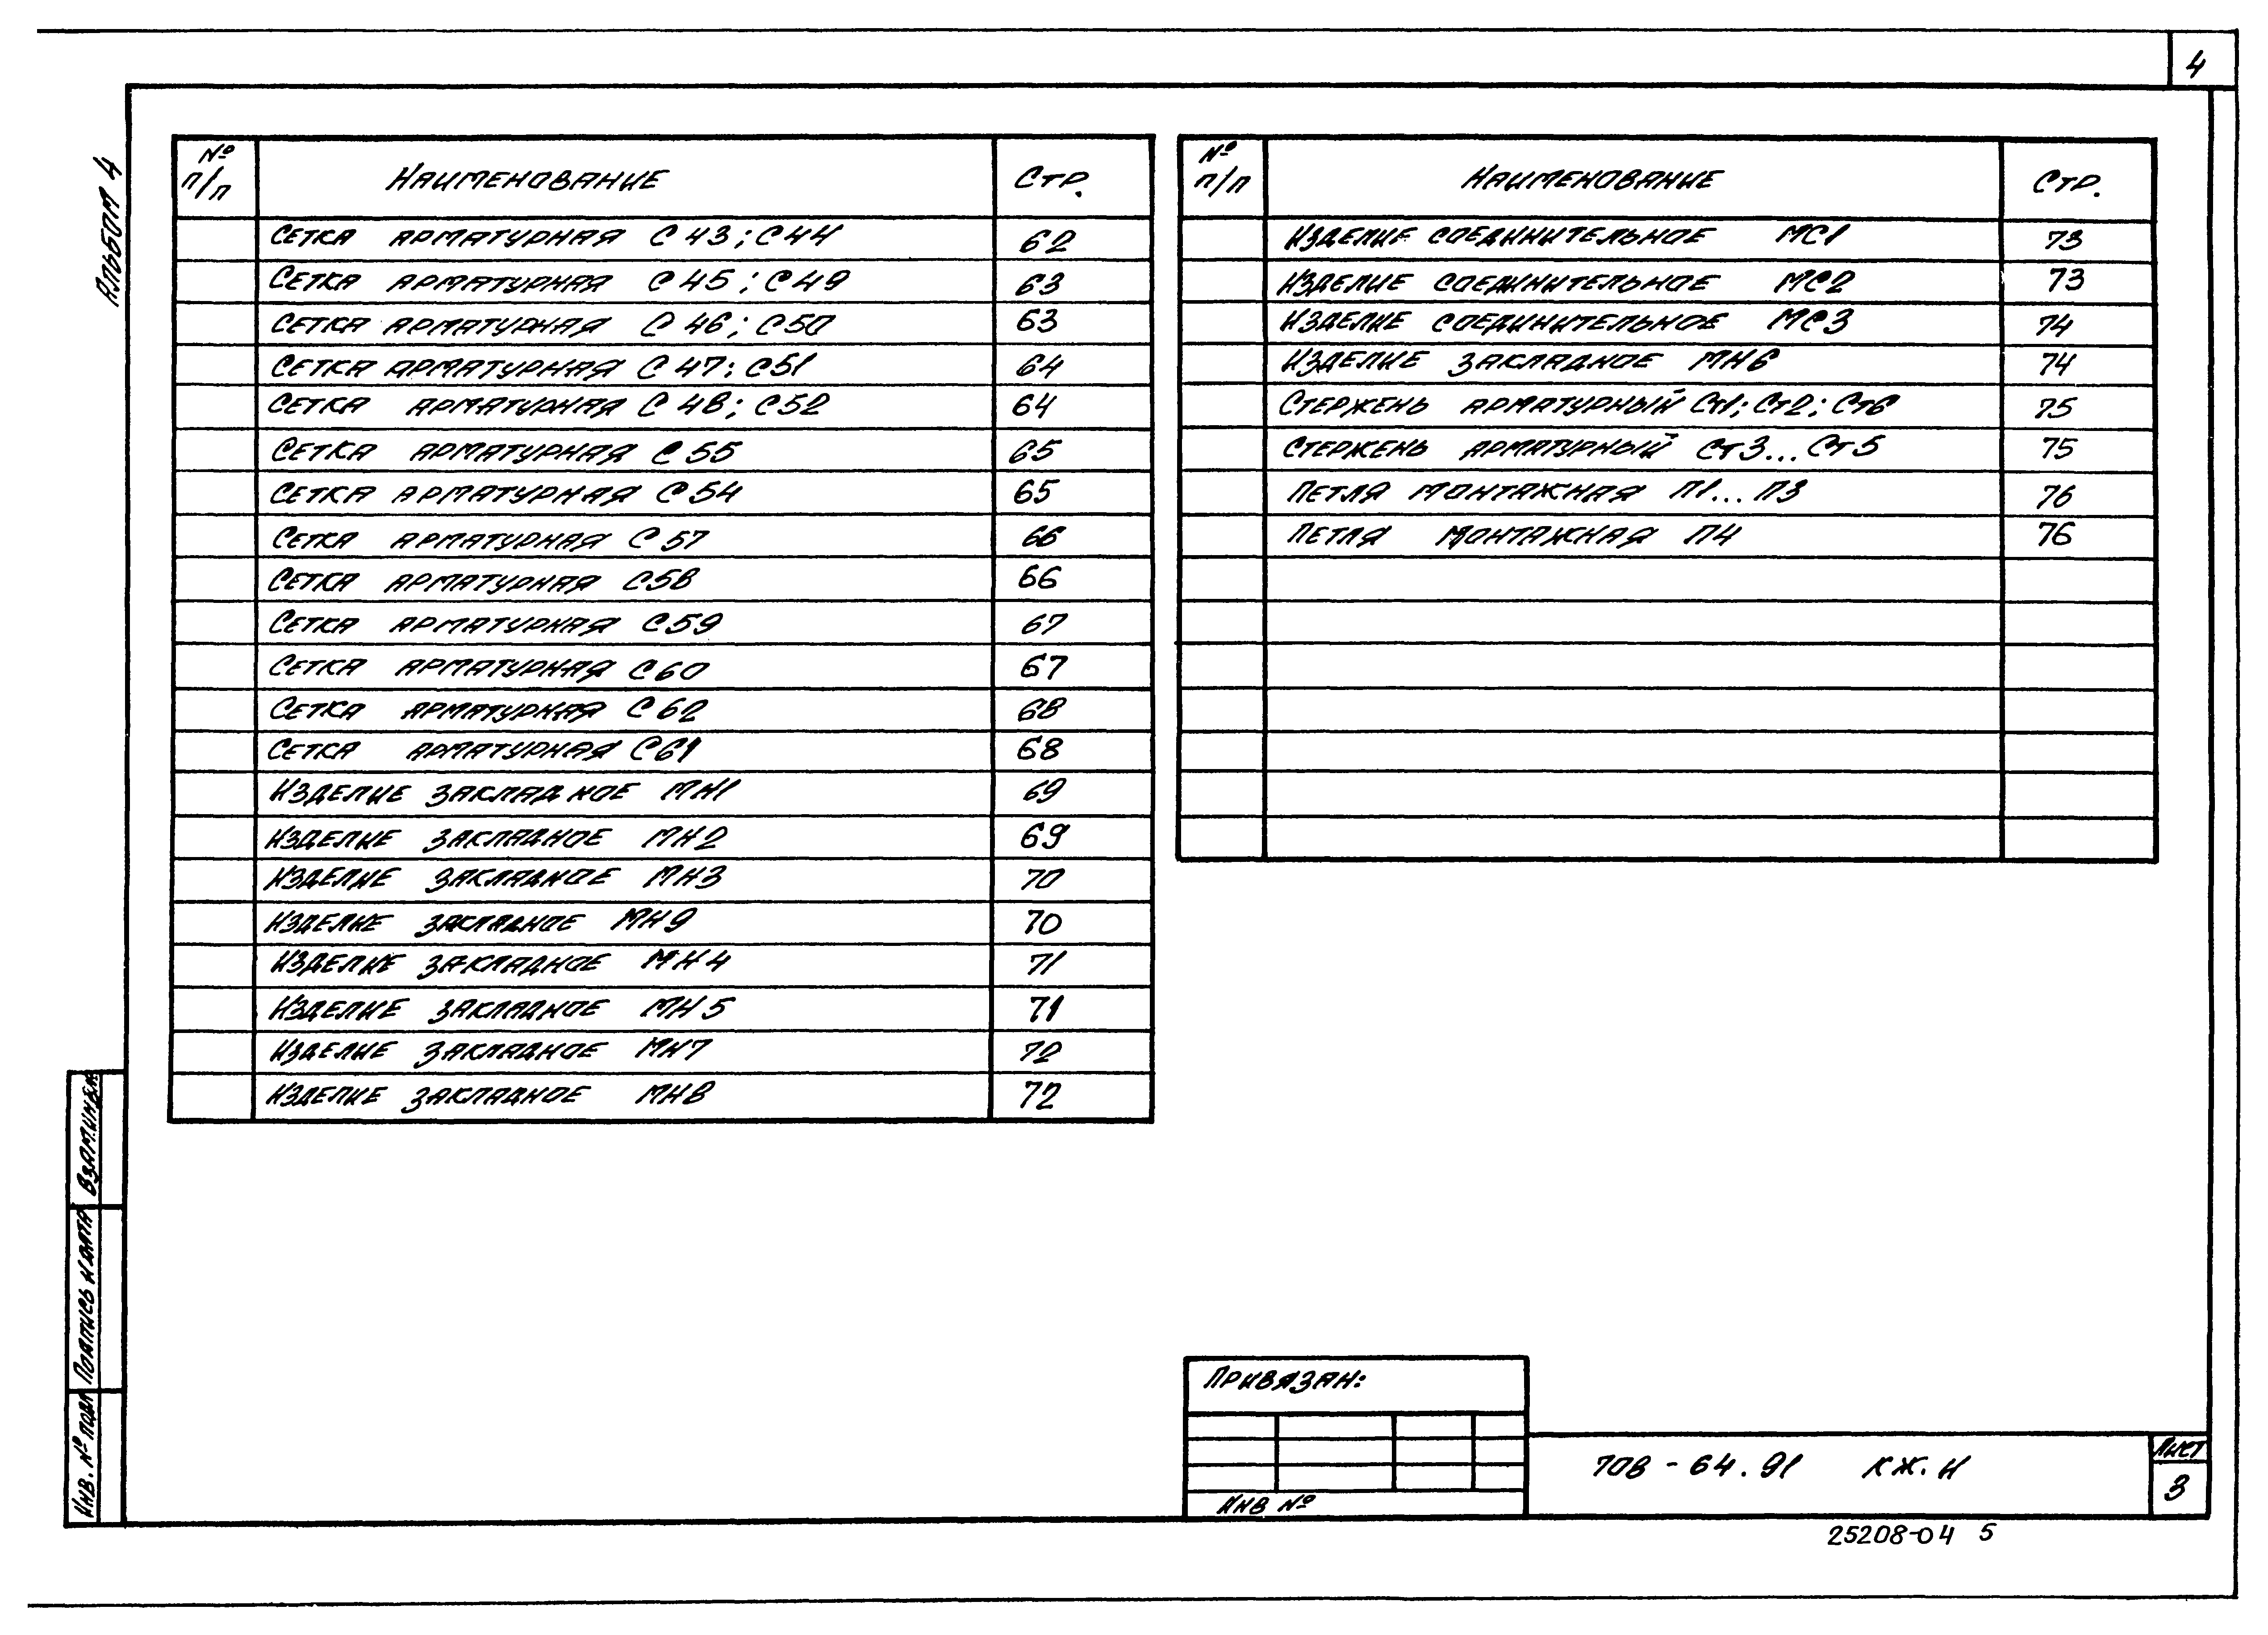 4
Альбом 4
№ п/п Наименование Стр.
Сетка арматурная С43; С44 62
Сетка арматурная С45; С49 63
Сетка арматурная С46; С50 63
Сетка арматурная С47; С51 64
Сетка арматурная С48; С52 64
Сетка арматурная С55 65
Сетка арматурная С54 65
Сетка арматурная С57 66
Сетка арматурная С58 66
Сетка арматурная С59 67
Сетка арматурная С60 67
Сетка арматурная С62 68
Сетка арматурная С61 68
Изделие закладное МН1 69
Изделие закладное МН2 69
Изделие закладное МН3 70
Изделие закладное МН9 70
Изделие закладное МН4 71
Изделие закладное МН5 71
Изделие закладное МН7 72
Изделие закладное МН8 72
№ п/п Наименование Стр.
Изделие соединительное МС1 73
Изделие соединительное МС2 73
Изделие соединительное МС3 74
Изделие закладное МН6 74
Стержень арматурный Ст1; Ст2; Ст6 75
Стержень арматурный Ст3...Ст5 75
Петля монтажная П1...П3 76
Петля монтажная П4 76
Взам.инв.№
Подпись и дата
Инв. № подл
Привязан:
Инв №
708-64.91 КЖ.И
Лист
3
25208-04 5